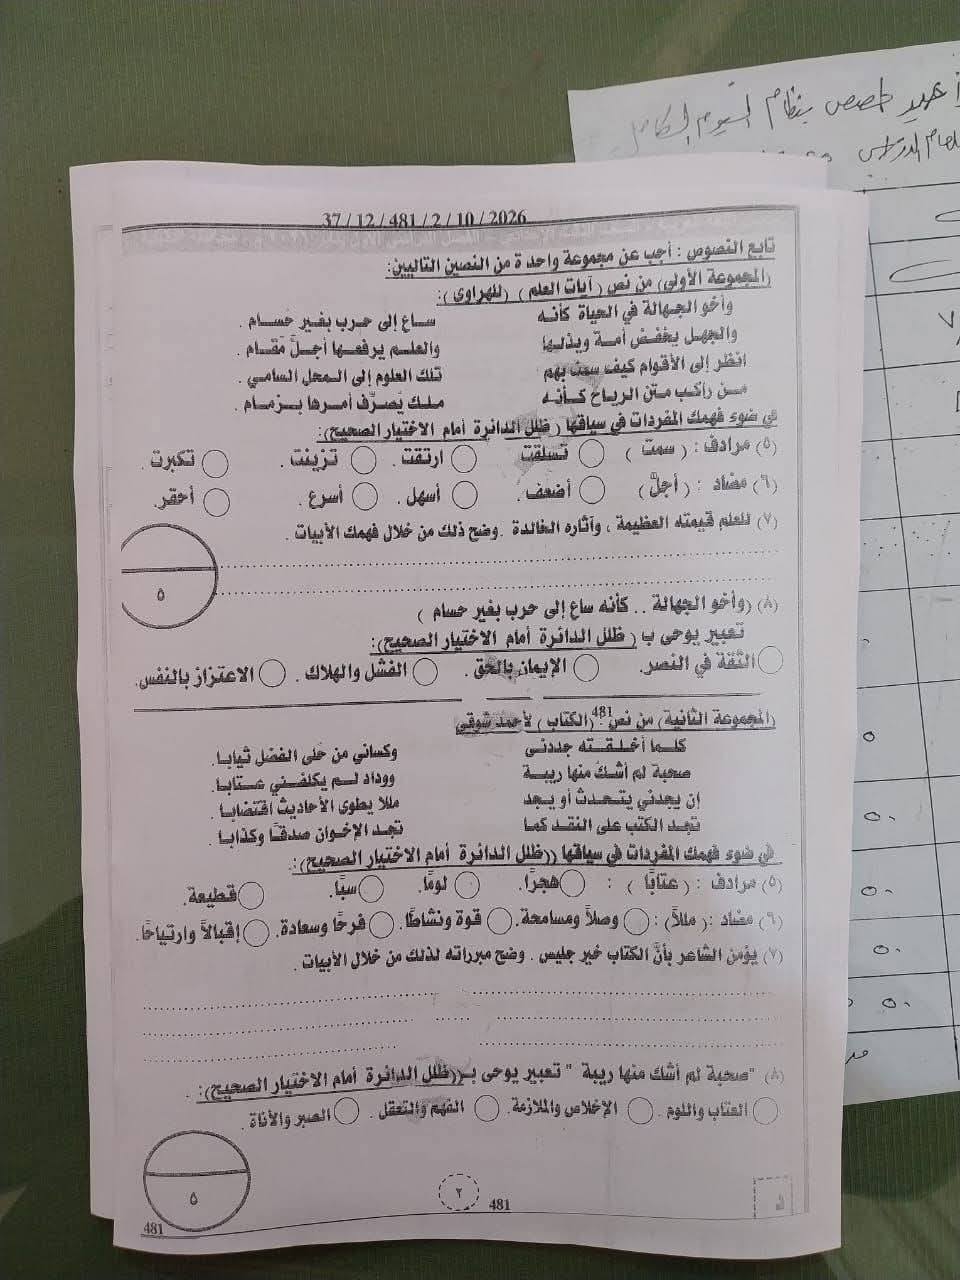 عبيد طصص بنظام اليوم الكامل
37 / 12 / 481 / 2 / 10 / 2026
تابع النصوص : أجب عن مجموعة واحدة من النصين التاليين:
(المجموعة الأولى) من نص ( آيات العلم ) (للهراوى ):
وأخو الجهالة في الحياة كأنه ساع إلى حرب بغير حسام .
والجهل يخفض أمة ويذلها والعلم يرفعها أجلَّ مَقام .
انظر إلى الأقوام كيف سمت بهم تلك العلوم إلى المحل السامي .
من راكب متن الرياح كأنه ملك يُصرِّف أمرها بزمام .
في ضوء فهمك المفردات في سياقها ( ظلل الدائرة أمام الاختيار الصحيح):
(٥) مرادف : ( سمت ) تسلقت ارتقت . تزينت . تكبرت .
(٦) مضاد : ( أجلَّ ) أضعف . أسهل . أسرع . أحقر .
(٧) للعلم قيمته العظيمة ، وآثاره الخالدة . وضح ذلك من خلال فهمك الأبيات .
٥
(٨) (وأخو الجهالة .. كأنه ساع إلى حرب بغير حسام )
تعبير يوحى ب ( ظلل الدائرة أمام الاختيار الصحيح):
الثقة في النصر. الإيمان بالحق . الفشل والهلاك . الاعتزاز بالنفس.
(المجموعة الثانية) من نص : (الكتاب ) لأحمد شوقي
481
كلما أخلقته جددنى وكساني من حُلى الفضل ثيابا.
صحبة لم أشك منها ريبة ووداد لم يكلفني عتابا.
إن يجدني يتحدث أو يجد مللا يطوى الأحاديث اقتضابا .
تجد الكتب على النقد كما تجد الإخوان صدقًا وكذابا .
في ضوء فهمك المفردات في سياقها ((ظلل الدائرة أمام الاختيار الصحيح):
(٥) مرادف : ( عتابًا ) : هجرًا. لومًا. سبًا. قطيعة.
(٦) مضاد : ( مللاً ) : وصلاً ومسامحة. قوة ونشاطًا. فرحًا وسعادة. إقبالاً وارتياحًا.
(٧) يؤمن الشاعر بأنَّ الكتاب خير جليس . وضح مبرراته لذلك من خلال الأبيات .
(٨) "صحبة لم أشك منها ريبة " تعبير يوحى بـ((ظلل الدائرة أمام الاختيار الصحيح):
العتاب واللوم . الإخلاص والملازمة. الفهم والتعقل . الصبر والأناة .
٥
٢
481
481